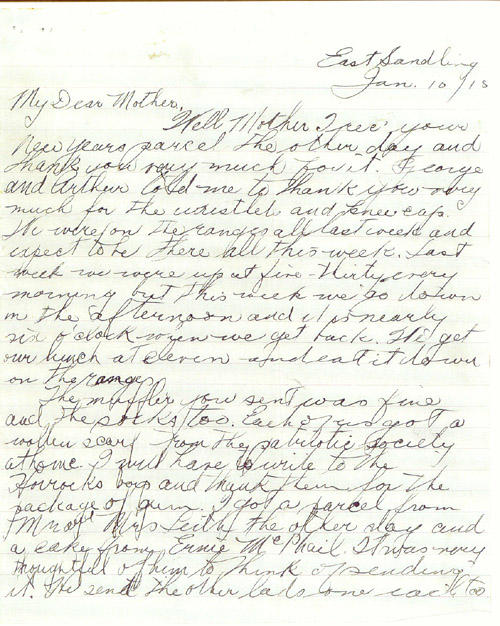 East Sandling
Jan. 10/16
My Dear Mother,
Well Mother I rec' your
New Years parcel the other day and
thank you very much for it. George
and Arthur told me to thank you very
much for the wristlets and knee cap.
We were on the ranges all last week and
expect to be there all this week. Last
week we were up at five-thirty every
morning but this week we go down
in the afternoon and it is nearly
six o'clock when we get back. We get
our lunch at eleven and eat it down
on the ranges
The muffler you sent was fine
and the socks too. Each of us got a
woolen scarf from the patriotic society
at home I will have to write to the
Horrocks boys and thank them for the
package of gum. I got a parcel from
Mr and Mrs Leith the other day and
a cake from Ernie McPhail. It was very
thoughtful of them to think of sending
it. He sent the other lads one each too